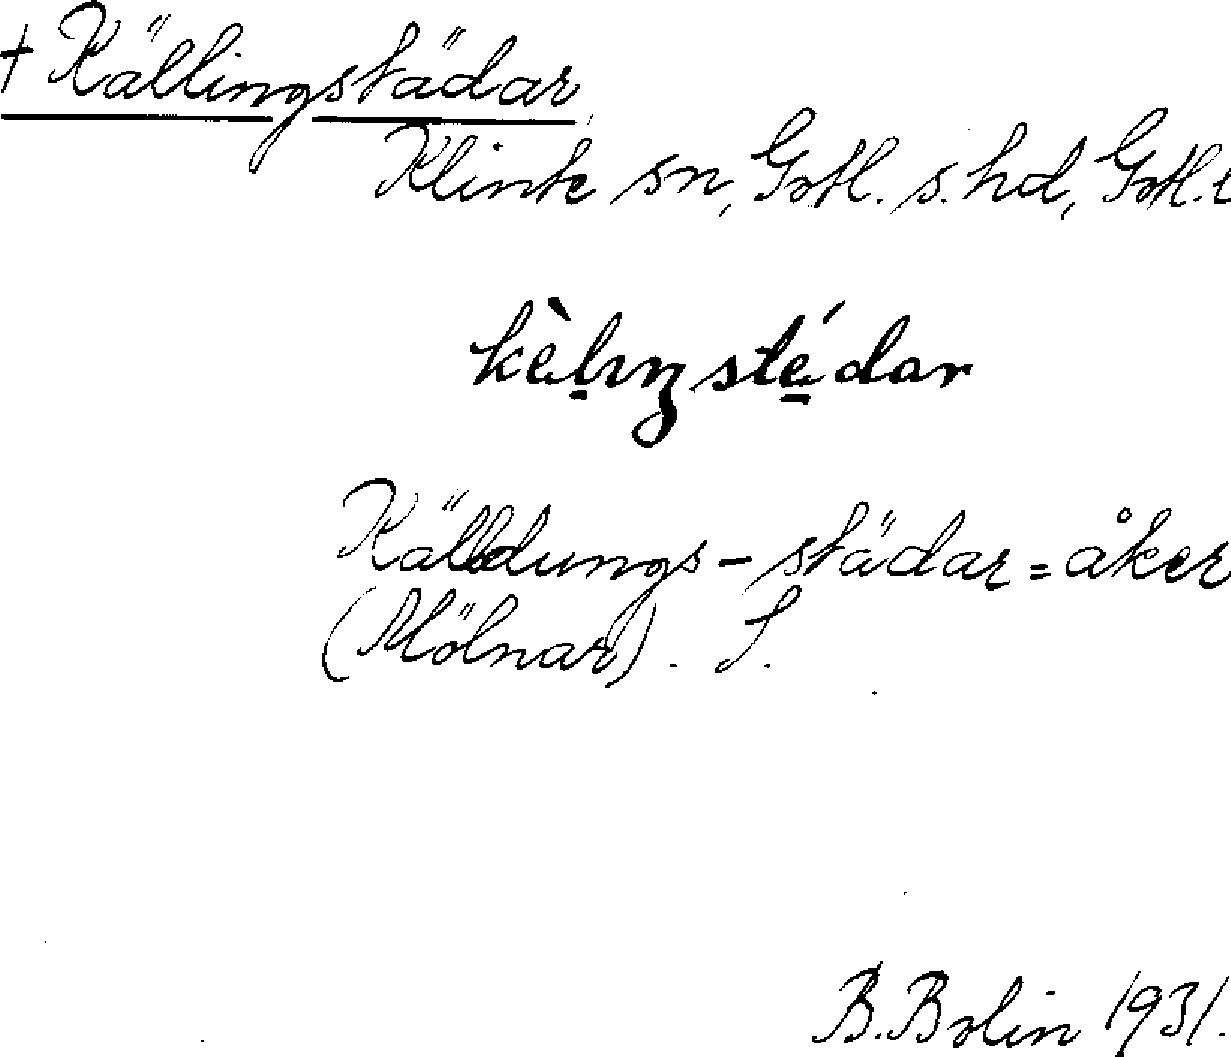 † Källingstädar
Klinte sn, Gotl. s. hd, Gotl. l
kèlıŋstédar
Källdungs-städar = åker
(Mölnar). S.
B. Bolin 1931.